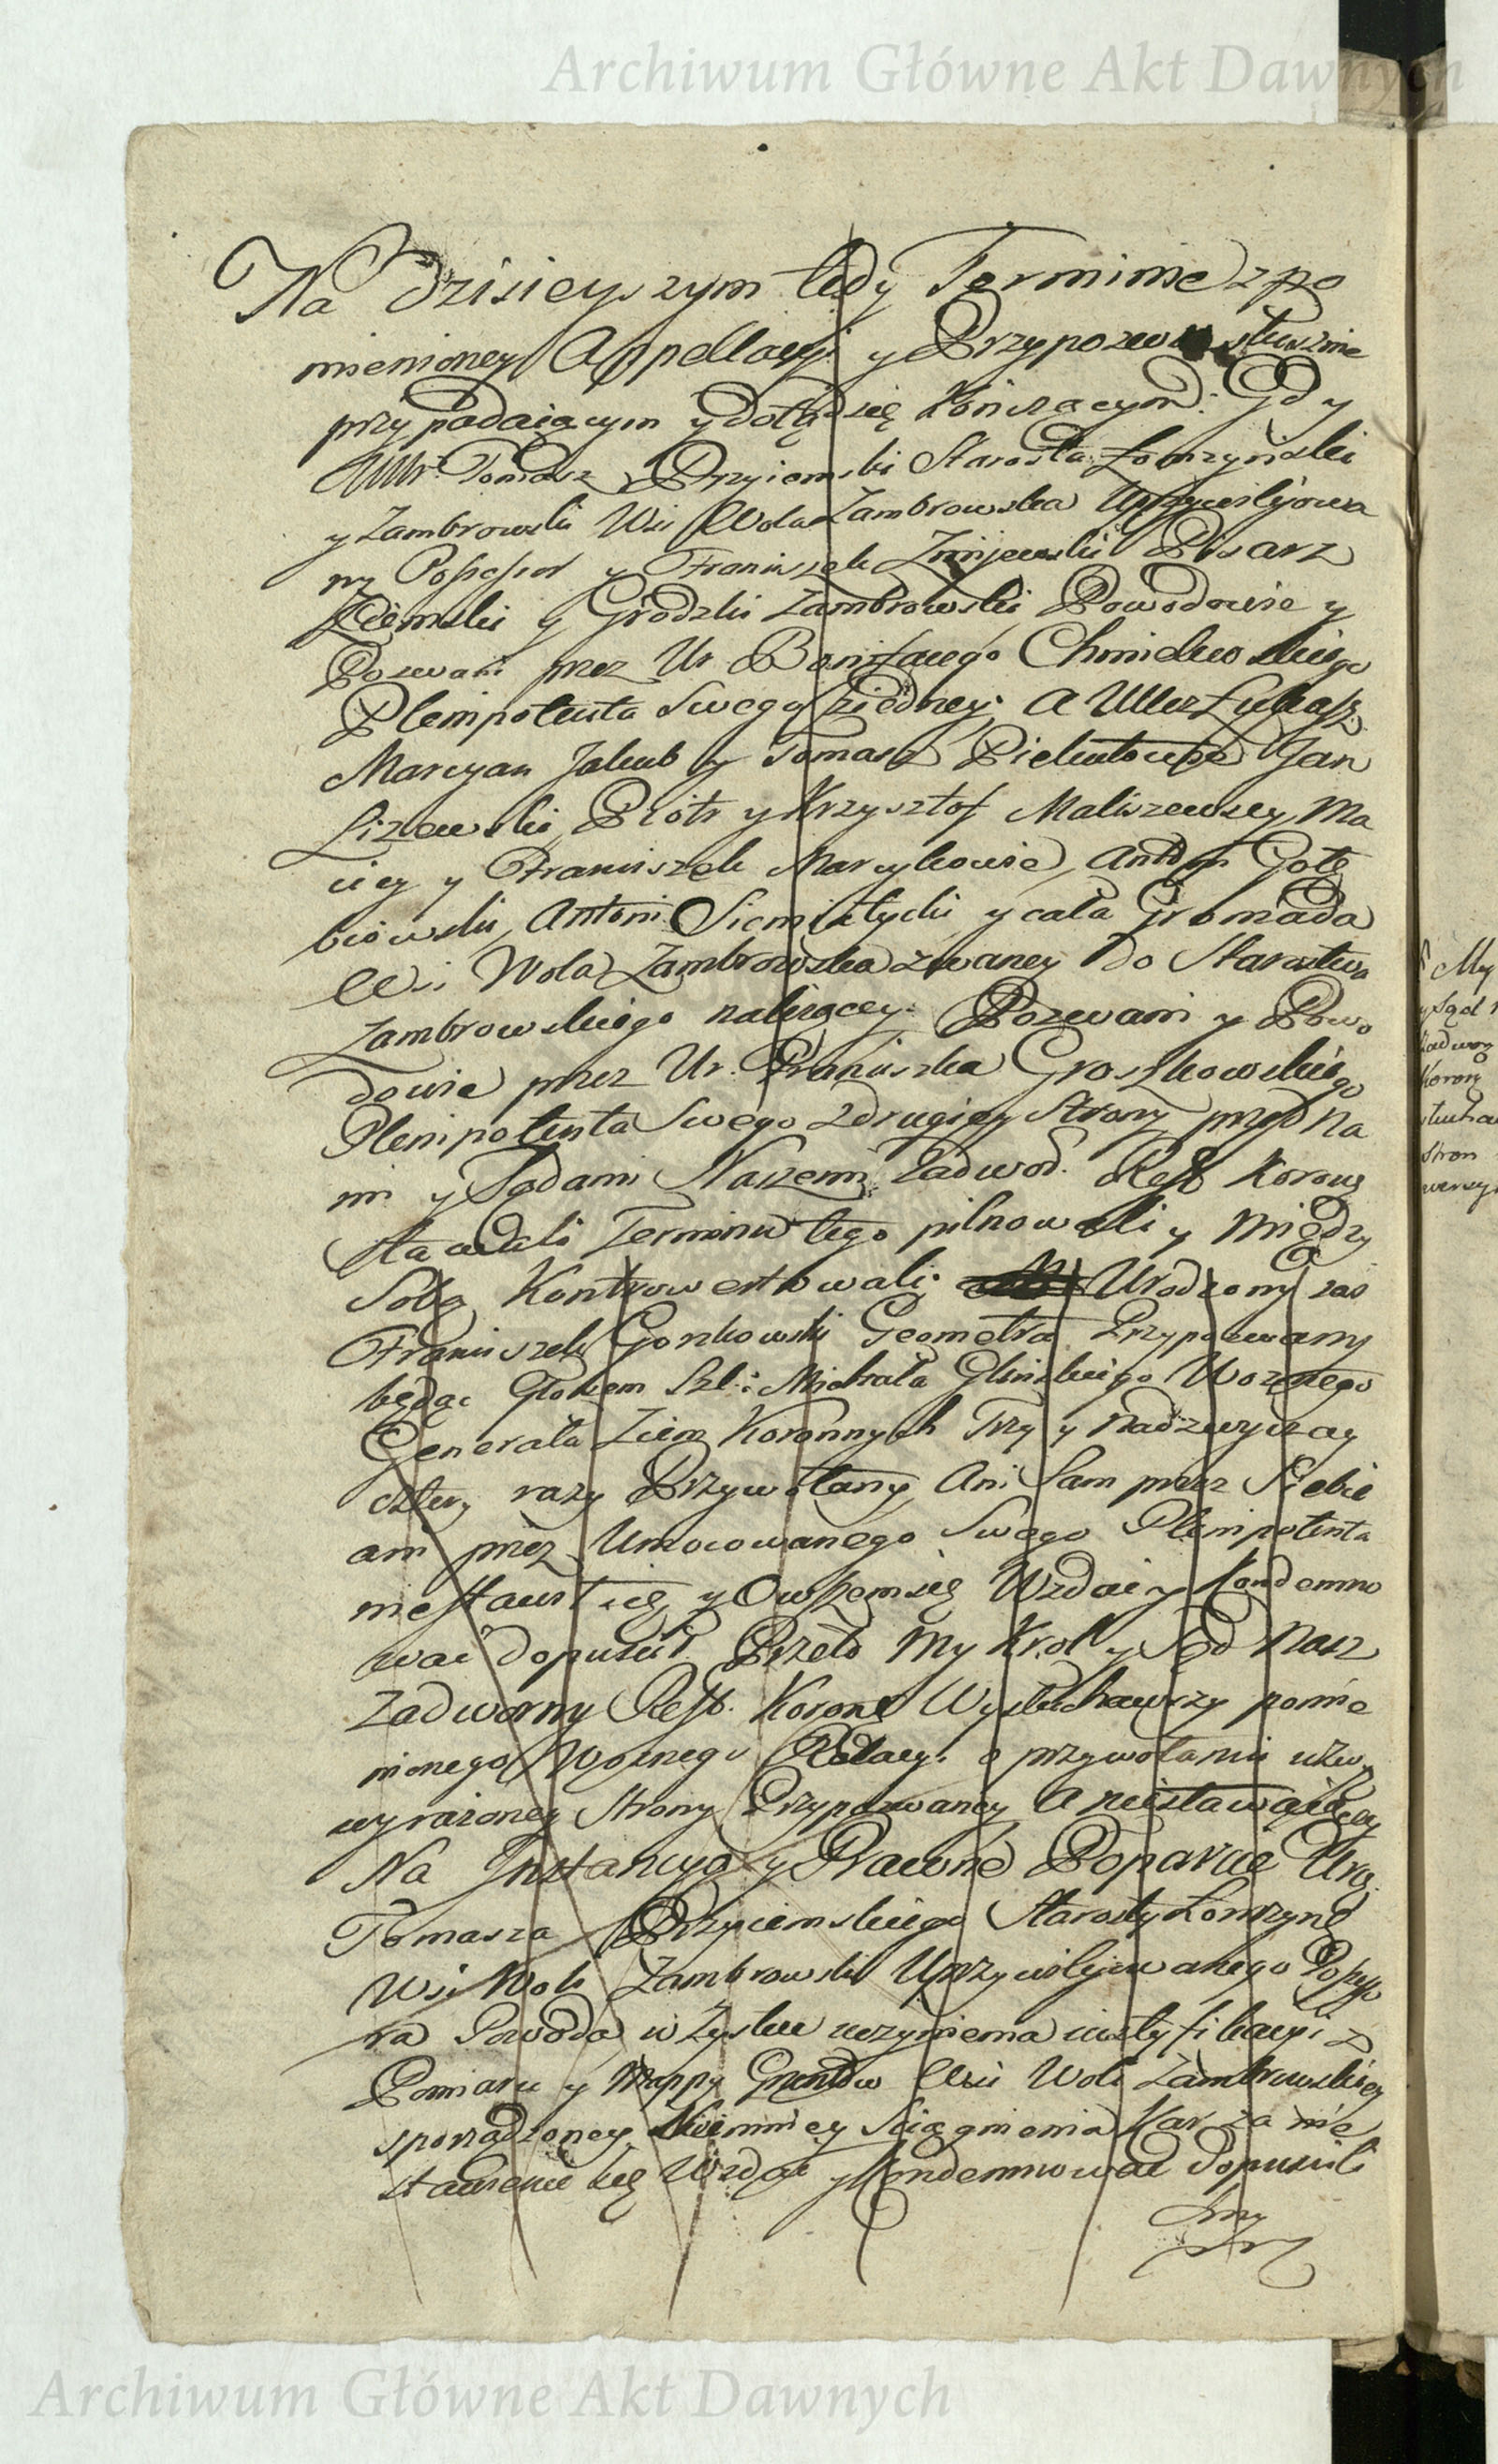 Archiwum Główne Akt Dawnych
Na dzisieyszym tedy Terminie z po
mienioney Appellacyi y Przypozwu słusznie
przypadaiącym y dotąd się kończącym: Gdy
Tomasz Przyiemski Starosta Łomżyński
y Zambrowski Wsi Wola Zambrowska Uprzywilejowa
ny Possessor y Franiszek Zmijewski Pisarz
Ziemski y Grodzki Zambrowski Powodowie y
Pozwani przez Ur Bonifacego Chmielewskiego
Plenipotenta Swego z iedney; A Łukasz
Marcyan Jakub y Tomasz Jan
Lizewski, Piotr y Krzysztof Maliszewscy, Ma
ciey y Franiszek Marcykowie, Antoni Gołę
biowski, Antoni Siemiatycki y cała Gromada
Wsi Wola Zambrowska zwaney do Starostwa
Zambrowskiego należącey. Pozwani y Powo
dowie przez Ur. Franiszka Groszkowskiego
Plenipotenta Swego z drugiey Strony przed Na
mi y Sądami Naszemi Zadwor. Ress Korony
stawali Terminu tego pilnowali y między
Sobą Kontrowertowali; Urodzony zas
Franiszek Gorzkowski Geometra Przypozwany
będąc Głosem Szl: Michała Glinskiego Woznego
Generała Ziem Koronnych Trzy y nadzwyczay
cztery razy Przywołany, Ani Sam przez Siebie
ani przez Umocowanego Swego Plenipotenta
niestawił się y Owszem się Wzdać y Kondemno
wać dopuscił. Przeto My Krol y Sąd Nasz
Zadworny Ress. Korony Wysłuchawszy pomie
nionego Woznego Relacyi o przywołaniu
wyrażoney Strony Przypozwaney A niestawaiącey
Na Instancyą y Prawne Poparcie Uro.
Tomasza Przyiemskiego Starosty Łomżyń
Wsi Woli Zambrowski Uprzywilejowanego Posseso
ra Powoda w Zysku uczynienia iustyfikacyi z
Pomiaru y Mappy Gruntów Wsi Woli Zambrowskiey
sporządzoney Niemniey Sciągnienia Kar za nie
stawienie się Wzdać y Kondemnować dopuscili
my
My
y Sąd
Zadwor
Korony
słucha
Stron
Archiwum Główne Akt Dawnych